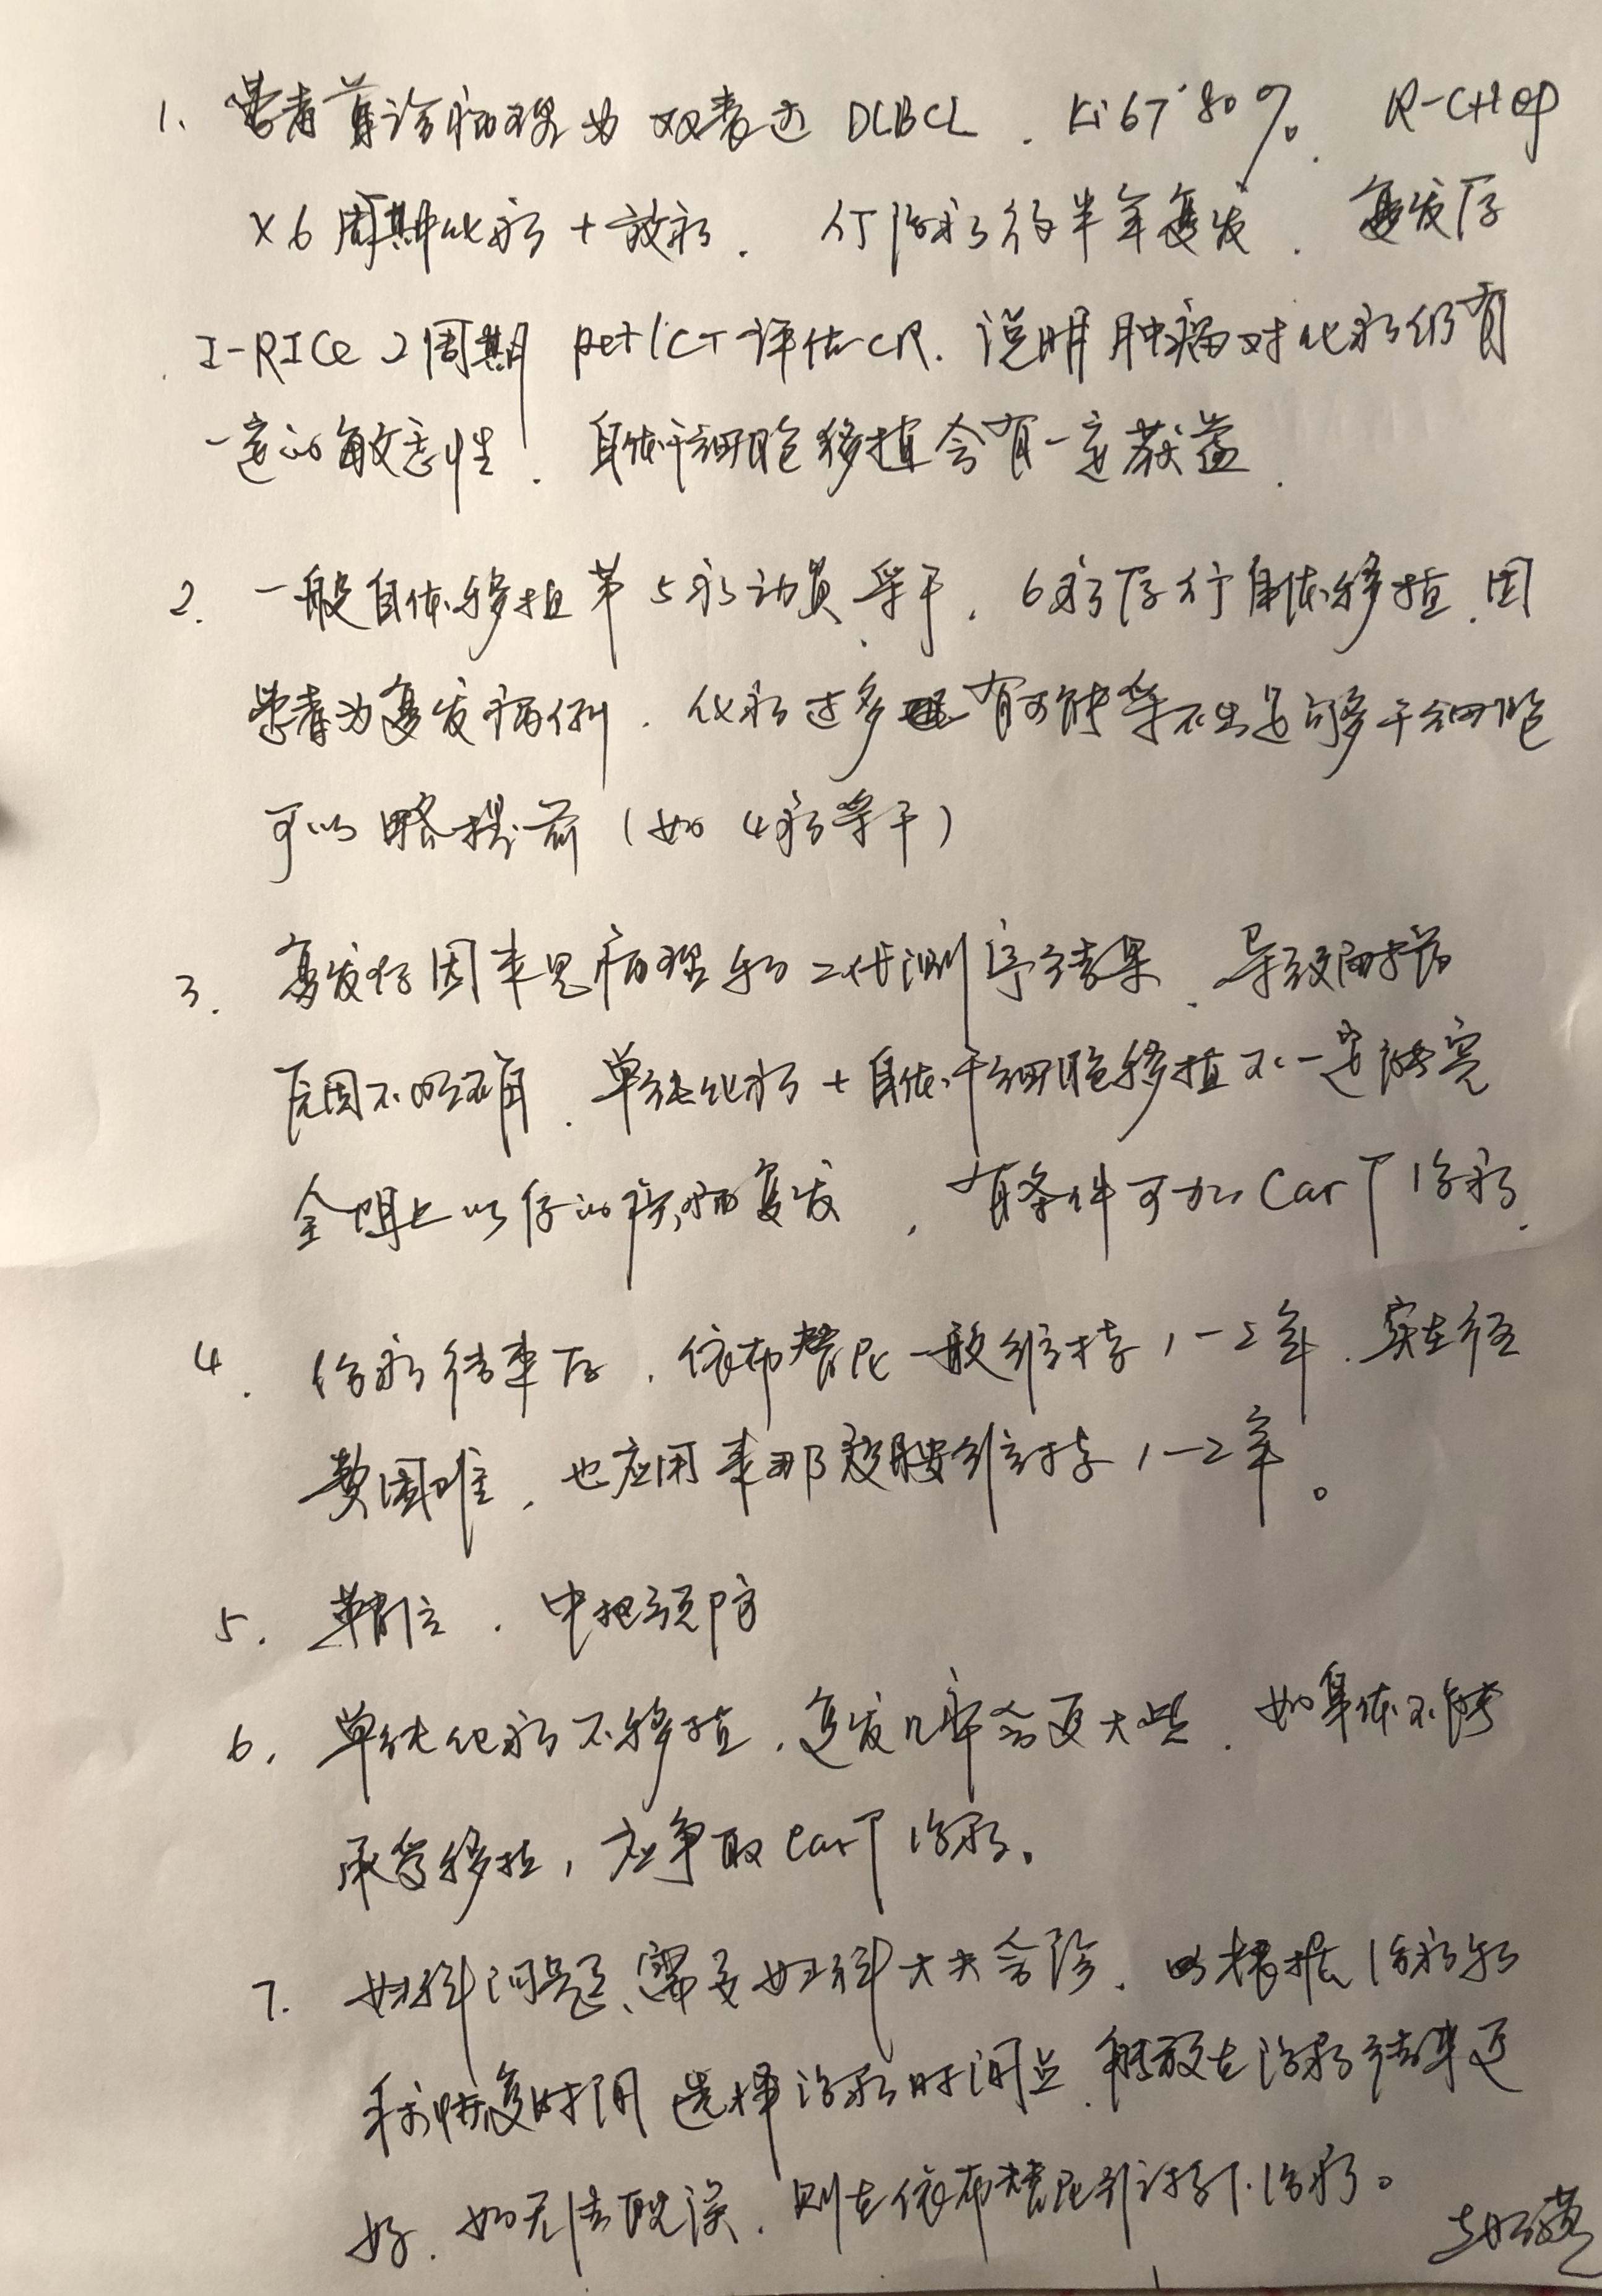 1. 患者首诊病理为双表达 DLBCL. Ki67 80%. R-CHOP
×6周期化疗+放疗. 行治疗后半年复发. 复发后
I-RICE 2周期 pet/CT评估CR. 说明肿瘤对化疗仍有
一定的敏感性. 自体干细胞移植会有一定获益.
2. 一般自体移植第5疗动员采干. 6疗后行自体移植. 因
患者为复发病例. 化疗过多 有可能采不出足够干细胞
可以略提前(如4疗采干)
3. 复发后因未见病理和二代测序结果. 导致
原因不明确. 单纯化疗+自体干细胞移植不一定能完
全阻止以后的疾病复发, 有条件可加CarT治疗.
4. 治疗结束后, 依布替尼一般维持1-2年. 实在经
费困难, 也应用来那度胺维持1-2年。
5. 鞘注. 中枢预防
6. 单纯化疗不移植, 复发几率会更大些. 如身体不能
承受移植, 应争取carT治疗。
7. 妇科问题, 需要妇科大夫会诊. 根据治疗和
手术恢复时间选择治疗时间点. 能放在治疗结束更
好. 如无法耽误, 则在依布替尼维持下治疗。